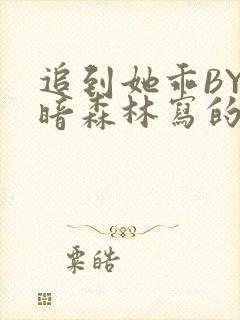 追到她乖BY
暗森林寫的
粟皓